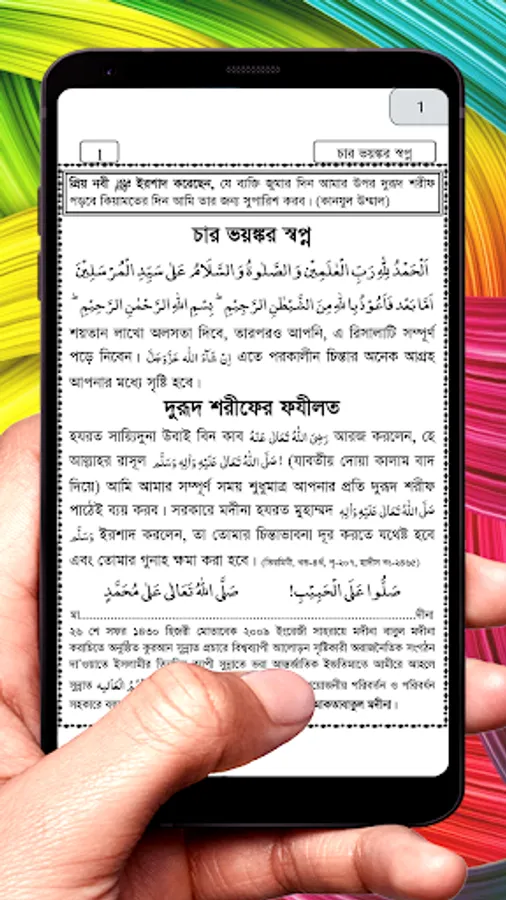 1
1
চার ভয়ঙ্কর স্বপ্ন
প্রিয় নবী ﷺ ইরশাদ করেছেন, যে ব্যক্তি জুমার দিন আমার উপর দুরূদ শরীফ
পড়বে কিয়ামতের দিন আমি তার জন্য সুপারিশ করব। (কানযুল উম্মাল)
চার ভয়ঙ্কর স্বপ্ন
اَلْحَمْدُ لِلّٰهِ رَبِّ الْعٰلَمِيْنَ وَ الصَّلٰوةُ وَ السَّلَامُ عَلٰى سَيِّدِ الْمُرْسَلِيْنَ
اَمَّا بَعْدُ فَاَعُوْذُ بِاللّٰهِ مِنَ الشَّيْطٰنِ الرَّجِيْمِ ؕ بِسْمِ اللّٰهِ الرَّحْمٰنِ الرَّحِيْمِ ؕ
শয়তান লাখো অলসতা দিবে, তারপরও আপনি, এ রিসালাটি সম্পূর্ণ
পড়ে নিবেন। اِنْ شَآءَ اللّٰه عَزَّوَجَلَّ এতে পরকালীন চিন্তার অনেক আগ্রহ
আপনার মধ্যে সৃষ্টি হবে।
দুরূদ শরীফের ফযীলত
হযরত সায়্যিদুনা উবাই বিন কাব رَضِىَ اللّٰهُ تَعَالٰى عَنْهُ আরজ করলেন, হে
আল্লাহর রাসূল صَلَّى اللّٰهُ تَعَالٰى عَلَيْهِ وَاٰلِهٖ وَسَلَّم! (যাবতীয় দোয়া কালাম বাদ
দিয়ে) আমি আমার সম্পূর্ণ সময় শুধুমাত্র আপনার প্রতি দুরূদ শরীফ
পাঠেই ব্যয় করব। সরকারে মদীনা হযরত মুহাম্মদ صَلَّى اللّٰهُ تَعَالٰى عَلَيْهِ وَاٰلِهٖ
وَسَلَّم ইরশাদ করলেন, তা তোমার চিন্তাভাবনা দূর করতে যথেষ্ট হবে
এবং তোমার গুনাহ ক্ষমা করা হবে। (তিরমিযী, খন্ড-৪র্থ, পৃ-২০৭, হাদীস নং-২৪৬৫)
صَلُّوا عَلَى الْحَبِيْبِ! صَلَّى اللّٰهُ تَعَالٰى عَلٰى مُحَمَّدٍ
২৬ শে সফর ১৪৩০ হিজরী মোতাবেক ২০০৯ ইংরেজী সাহরায়ে মদীনা বাবুল মদীনা
করাচিতে অনুষ্ঠিত কুরআন সুন্নাত প্রচারে বিশ্বব্যাপী আলোড়ন সৃষ্টিকারী অরাজনৈতিক সংগঠন
দা'ওয়াতে ইসলামীর সুন্নাতে ভরা আন্তর্জাতিক ইজতিমাতে আমীরে আহলে
সুন্নাত পরিবর্তন ও পরিবর্ধন
সহকারে মাকতাবাতুল মদীনা।